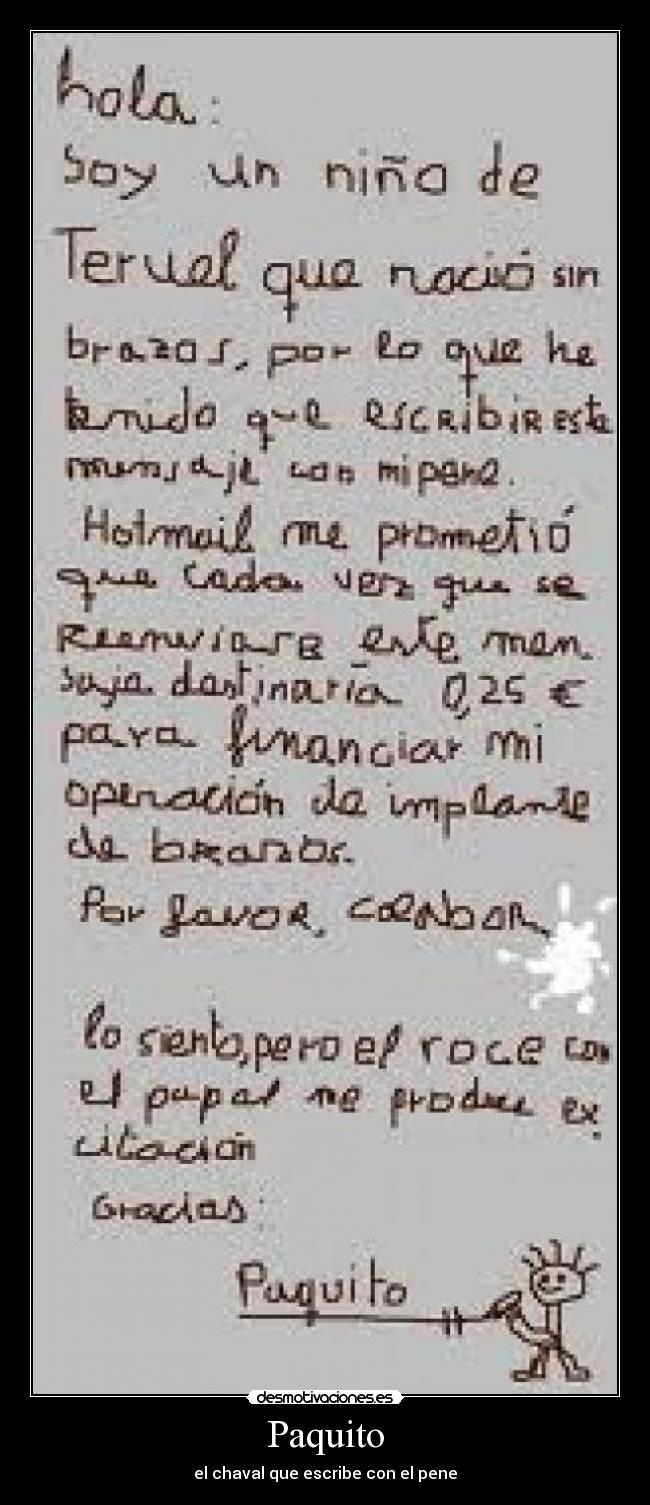 hola:
Soy un niño de
Teruel que nació sin
brazos, por lo que he
tenido que escribir este
mensaje con mi pene.
Hotmail me prometió
que cada vez que se
reenviara este men-
saje destinaría 0,25 €
para financiar mi
operación de implante
de brazos.
Por favor,
lo siento, pero el roce con
el papel me produce ex-
citación
Gracias:
Paquito
desmotivaciones.es
Paquito
el chaval que escribe con el pene